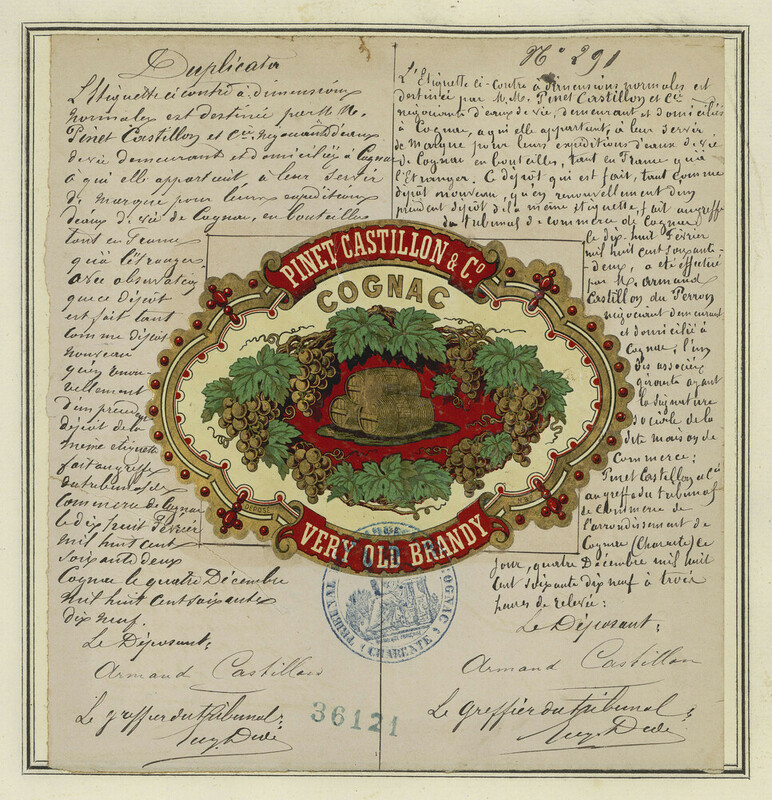 Duplicata
L'Etiquette ci contre à dimensions
normales est destinée par M. M.
Pinet Castillon et Cie, négociants d'eaux
de vie demeurant et domiciliés à Cognac
à qui elle appartient à leur servir
de marque pour leurs expéditions
d'eaux de vie de Cognac, en bouteilles
tant en France
qu'à l'étranger
avec observation
que ce dépôt
est fait tant
comme dépôt
nouveau
qu'en renou-
vellement
d'un précédent
dépôt de la
même etiquette
fait au greffe
du tribunal de
Commerce de Cognac
le dix huit Février
mil huit cent
soixante deux
Cognac le quatre Décembre
mil huit cent soixante
dix neuf.
Le Déposant;
Armand Castillon
Le greffier du tribunal;
N° 291
L'Etiquette ci-contre à dimensions normales est
destinée par M. M. Pinet Castillon et Cie
négociants d'eaux de vie, demeurant et domiciliés
à Cognac, à qui elle appartient, à leur servir
de marque pour leurs expéditions d'eaux de vie
de Cognac en bouteilles, tant en France qu'à
l'Etranger. Ce dépôt qui est fait, tant comme
dépôt nouveau, qu'en renouvellement d'un
précédent dépôt de la même etiquette, fait au greffe
du tribunal de commerce de Cognac
le dix-huit Février
mil huit cent soixante-
deux, a été effectué
par M. Armand
Castillon du Perron
négociant demeurant
et domicilié à
Cognac, l'un
des associés
gérants ayant
la signature
sociale de la
dite maison de
Commerce:
Pinet Castillon et Cie
au greffe du tribunal
de Commerce de
l'arrondissement de
Cognac (Charente) ce
jour, quatre Décembre mil huit
cent soixante dix neuf à trois
heures de relevée:
Le Déposant;
Armand Castillon
Le greffier du tribunal;
PINET CASTILLON & Co
COGNAC
DÉPOSÉ
VERY OLD BRANDY
TRIBUNAL
COGNAC
(CHARENTE)
36121